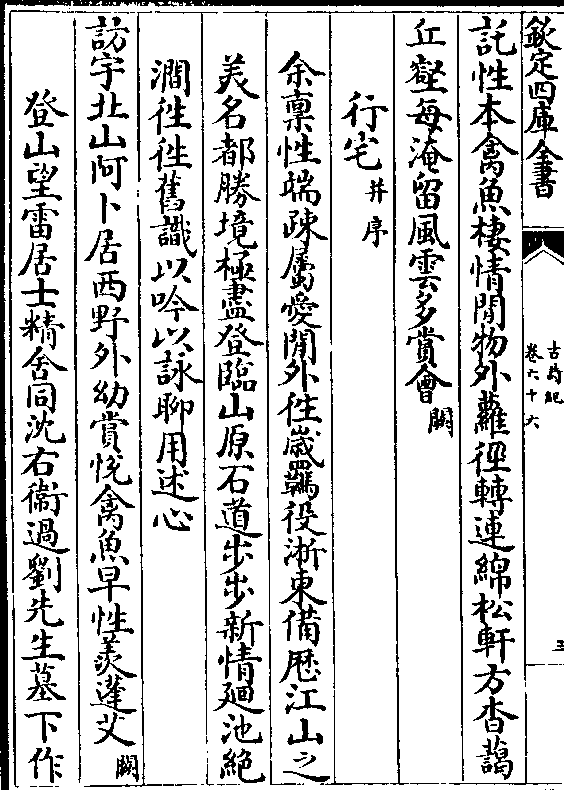 欽定四庫全書
古詩紀
卷六十六
五
託性本禽魚棲情閒物外蘿徑轉連綿松軒方杳藹
丘壑每淹留風雲多賞會闕
行宅并序
余稟性端疎屬愛閒外往歲羈役浙東備歴江山之
美名都勝境極盡登臨山原石道步步新情廻池絶
澗徃徃舊識以吟以詠聊用述心
訪宇北山阿卜居西野外幼賞悅禽魚早性羨蓬艾闕
登山望雷居士精舍同沈右衞過劉先生墓下作